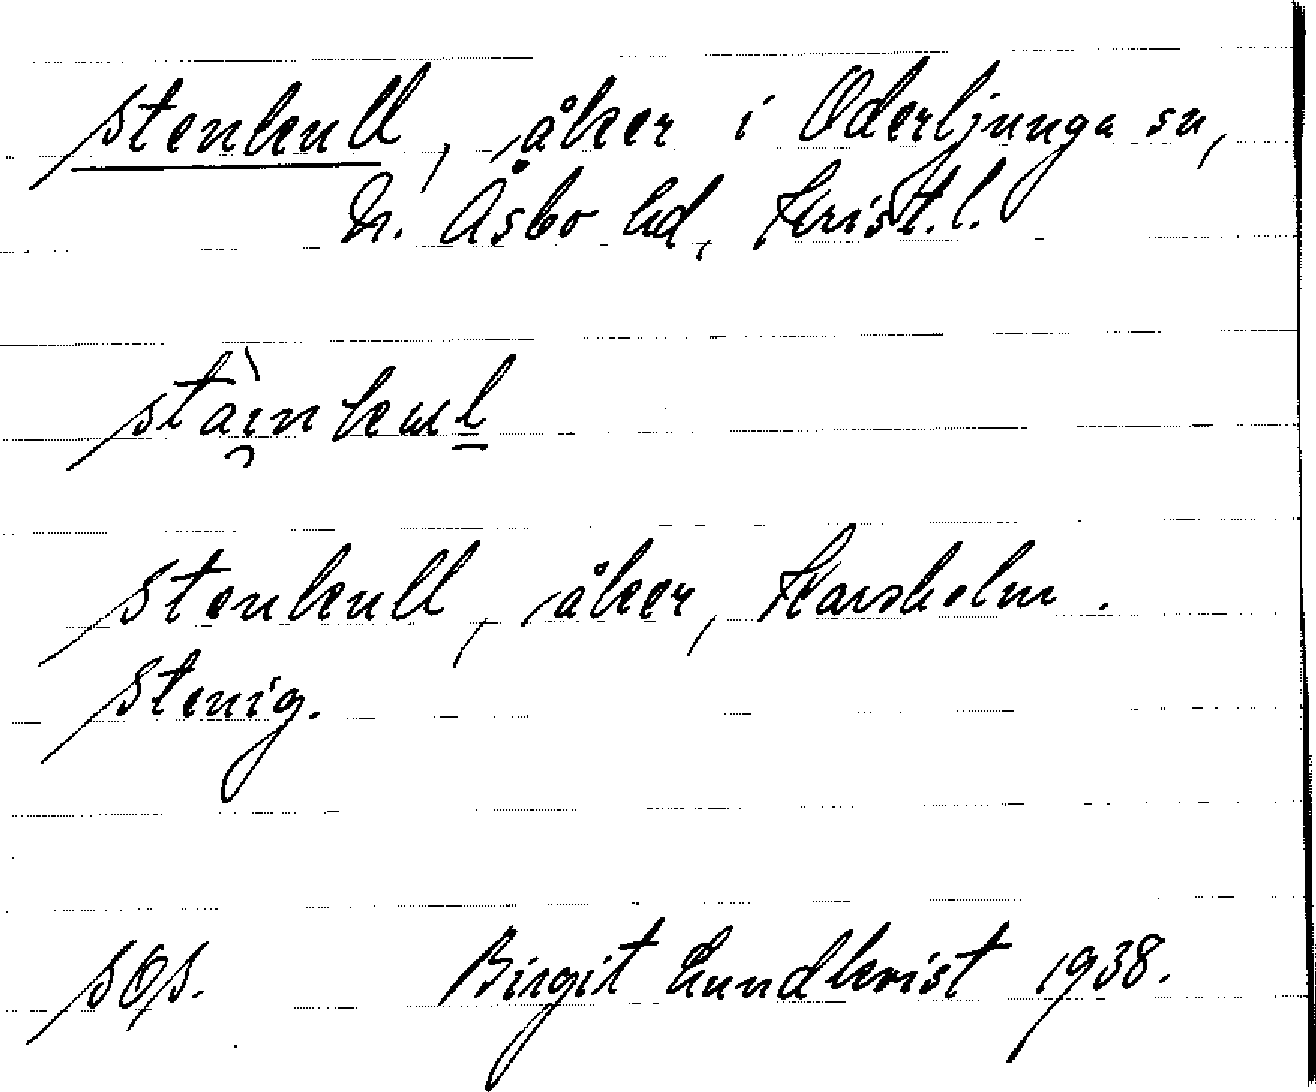 Stenkull, åker i Oderljunga sn,
N. Åsbo hd, Krist.l.
stàinkul
Stenkull, åker, Karsholm.
Stenig.
Birgit Lundkvist 1938.